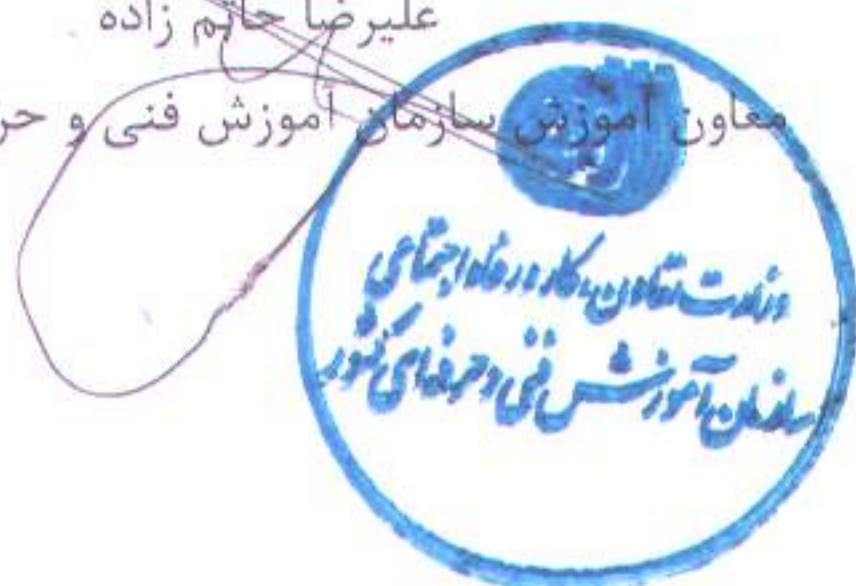 علیرضا حاتم زاده
معاون آموزش سازمان آموزش فنی و حر
وزارت تعاون، کار و رفاه اجتماعی
سازمان آموزش فنی و حرفه‌ای کشور